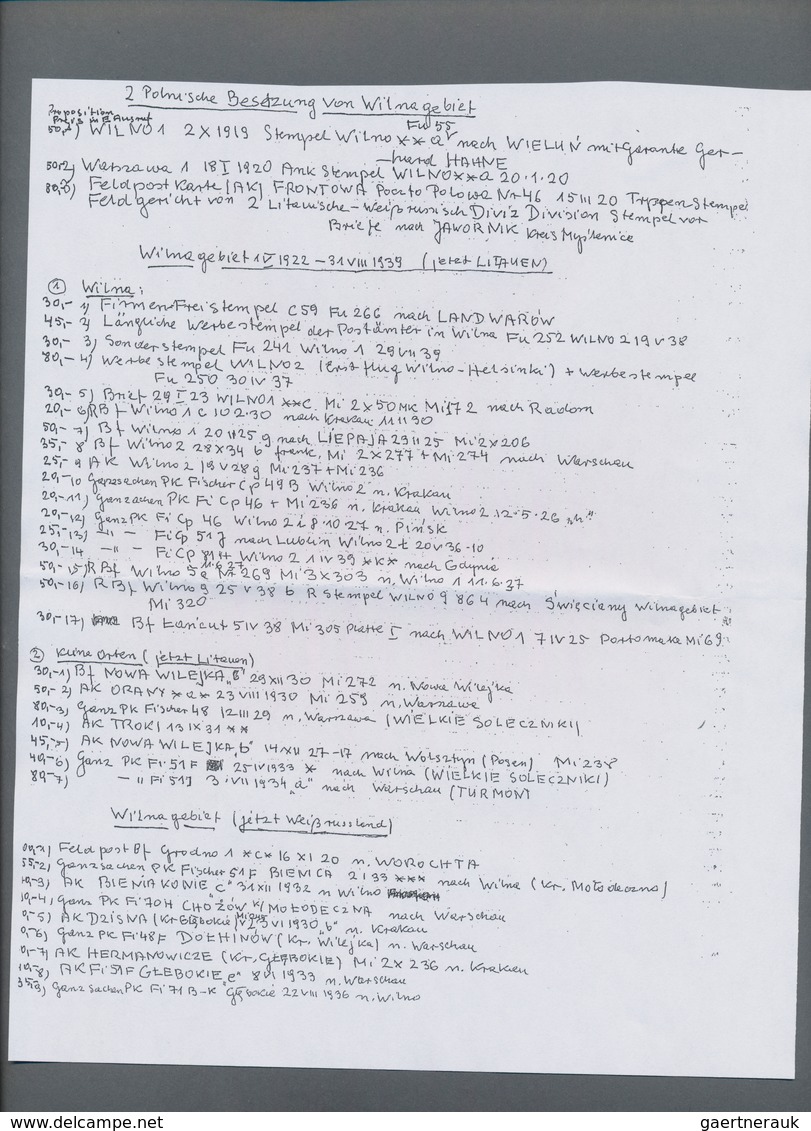 2 Polnische Besetzung von Wilnagebiet
Proposition
Preis in € Ausruf
Fu 55
50,-1) WILNO 1 2 X 1919 Stempel Wilno **a nach WIELUŃ mit Garante Ger-
hard HAHNE
50,-2) Warszawa 1 18 I 1920 Ank Stempel WILNO **a 20.1.20
80,-3) Feldpost Karte (AK) FRONTOWA Poczto Polowa Nr 46 15 III 20 Truppen Stempel
Feldgericht von 2 Litauische-Weißrussisch Diviz Division Stempel vor
Briefe nach JAWORNIK Kreis Myślenice
Wilnagebiet 1 V 1922 – 31 VIII 1939 (jetzt LITAUEN)
① Wilna:
30,- 1) Firmen Freistempel C 59 Fu 266 nach LANDWARÓW
45,- 2) Längliche Werbestempel der Postämter in Wilna Fu 252 WILNO 2 19 V 38
30,- 3) Sonderstempel Fu 241 Wilno 1 29 VII 39
80,- 4) Werbestempel WILNO 2 (Erstflug Wilno-Helsinki) + Werbestempel
Fu 250 30 IV 37
30,- 5) Brief 29 I 23 WILNO 1 **c Mi 2x50 MK Mi 172 nach Radom
20,- 6) RBf Wilno 1 c 10 2.30 nach Krakau 11 II 30
50,- 7) Bf Wilno 1 20 II 25 g nach LIEPAJA 23 II 25 Mi 2x206
35,- 8 Bf Wilno 2 28 X 34 b frank. Mi 2x277 + Mi 274 nach Warschau
25,- 9 AK Wilno 2 19 V 28 g Mi 237 + Mi 236
20,- 10 Ganzsachen PK Fischer Cp 49 B Wilno 2 n. Krakau
20,- 11) Ganzsachen PK Fi Cp 46 + Mi 236 n. Krakau Wilno 2 12.5.26 „h"
20,- 12) Ganz PK Fi Cp 46 Wilno 2 i 8 10 27 n. Pińsk
25,- 13) -"- - Fi Cp 51 J nach Lublin Wilno 2 ł 20 V 36-10
30,- 14 -"- - Fi Cp 81 H Wilno 2 1 IV 39 *k* nach Gdynia
50,- 15) RBf Wilno 5 a 11.6.37 Nr 269 Mi 3x303 n. Wilno 1 11.6.37
50,- 16) RBf Wilno 9 25 V 38 b R Stempel WILNO 9 864 nach Święciany Wilnagebiet
Mi 320
30,- 17) Bf Łańcut 5 IV 38 Mi 305 Platte I nach WILNO 1 7 IV 25 Portomarke Mi 69
② Kleine Orten (jetzt Litauen)
30,- 1) Bf NOWA WILEJKA „B" 29 XII 30 Mi 272 n. Nowa Wilejka
50,- 2) AK ORANY *a* 23 VIII 1930 Mi 259 n. Warszawa
80,- 3) Ganz PK Fischer 48 I 2 III 29 n. Warszawa (WIELKIE SOLECZNIKI)
10,- 4) AK TROKI 13 IX 31 **
45,- 5) AK NOWA WILEJKA „b" 14 XII 27-17 nach Wolsztyn (Posen) Mi 238
40,- 6) Ganz PK Fi 51 F 25 IV 1933 * nach Wilna (WIELKIE SOLECZNIKI)
80,- 7) -" Fi 51 J 3 VII 1934 „a" nach Warschau (TURMONT
Wilnagebiet (jetzt Weißrussland)
1) Feldpost Bf Grodno 1 *c* 16 XI 20 n. WOROCHTA
55,- 2) Ganzsachen PK Fischer 51 F BIENICA 2 I 33 *** nach Wilna (Kr. Mołodeczno)
3) AK BIENIAKONIE „c" 31 XII 1932 n Wilno
4) Ganz PK Fi 70 H CHOŻÓW K/MOŁODECZNA nach Warschau
5) AK DZISNA (Kr GŁĘBOKIE) 3 VI 1930 „b" n. Krakau
6) Ganz PK Fi 48 F DOŁHINÓW (Kr. Wilejka) n. Warschau
7) AK HERMANOWICZE (Kr. GŁĘBOKIE) Mi 2x236 n. Krakau
8) AK Fi 51 F GŁĘBOKIE „e" 8 VI 1933 n. Warschau
35,- 9) Ganzsachen PK Fi 71 B-K Głębokie 22 VIII 1936 n. Wilno
www.delcampe.net
gaertnerauk